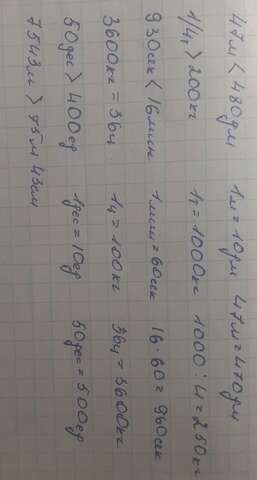 47м < 480дм 1м = 10дм 47м = 470дм
1/4т > 200кг 1т = 1000кг 1000 : 4 = 250кг
930сек < 16мин. 1мин = 60сек 16 · 60 = 960сек
3600кг = 36ц 1ц = 100кг 36ц = 3600кг
50дес > 400ед 1дес = 10ед 50дес = 500ед
7543м > 75м 43см